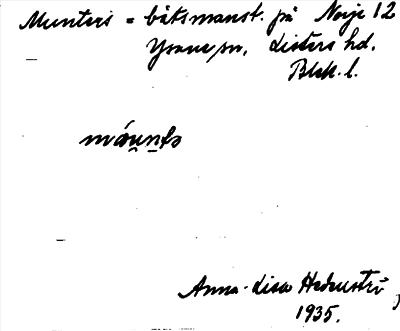 Munters = båtsmanst. på Norje 12
Ysane sn. Listers hd.
Blek. l.
máu̯n̪ts
Anna-Lisa Hedenström
1935.